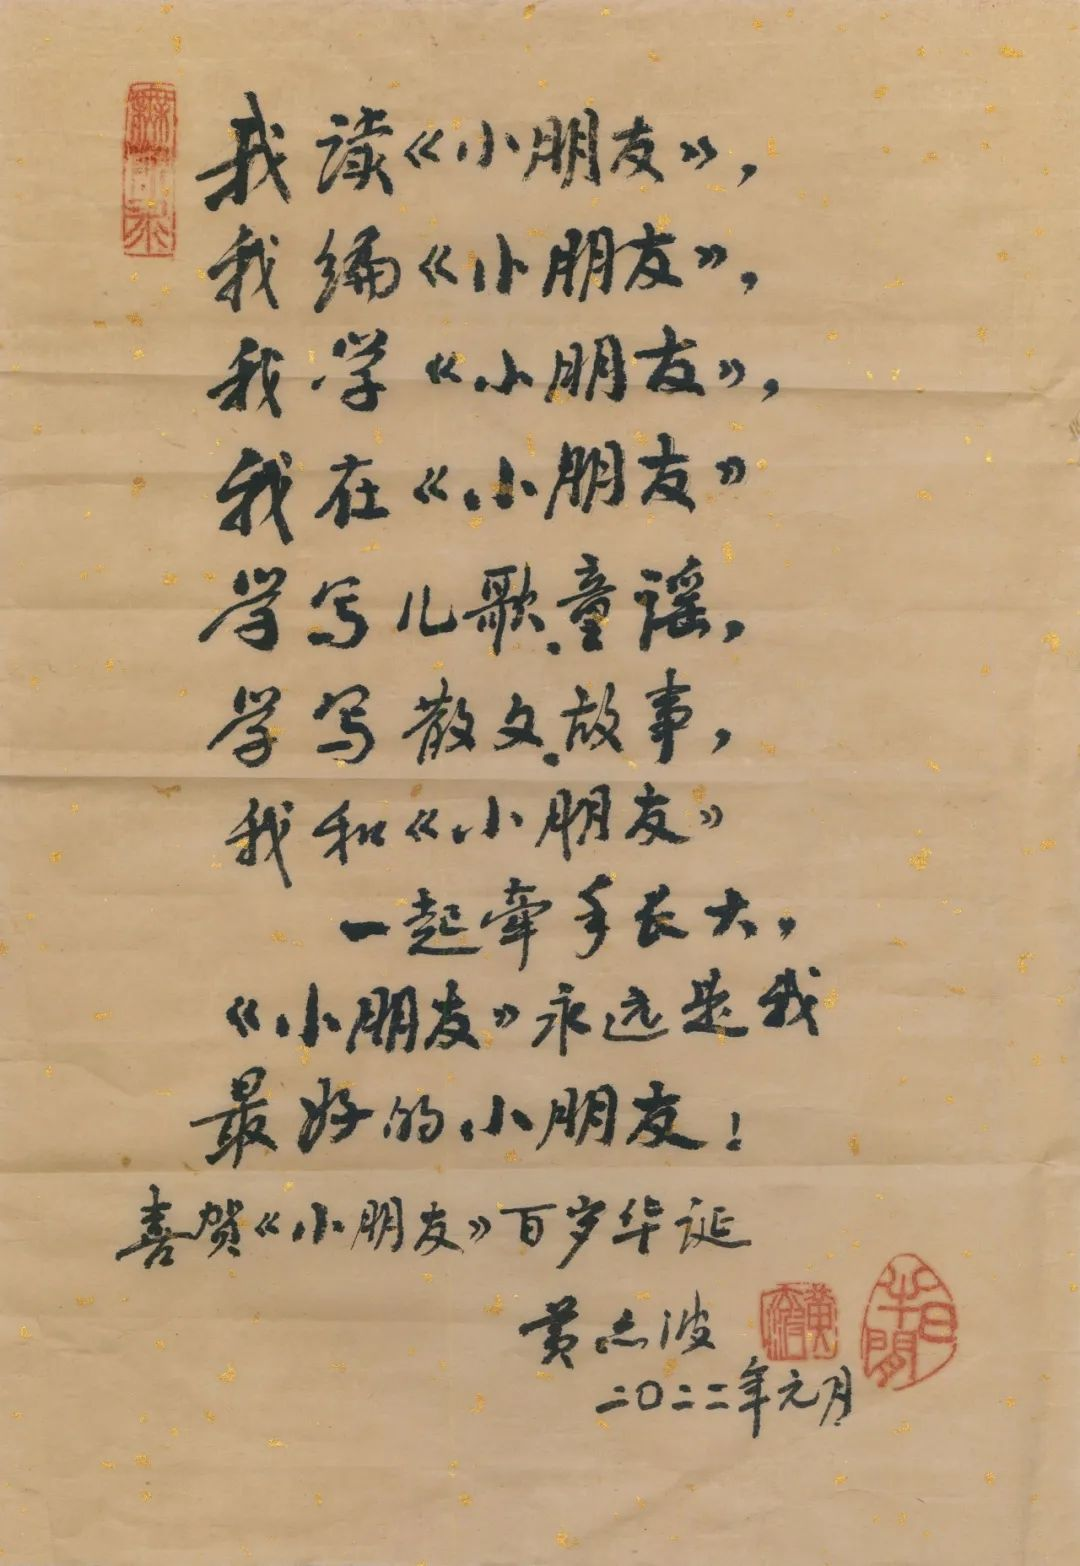 我读《小朋友》，
我编《小朋友》，
我学《小朋友》，
我在《小朋友》
学写儿歌、童谣，
学写散文、故事，
我和《小朋友》
一起牵手长大，
《小朋友》永远是我
最好的小朋友！
喜贺《小朋友》百岁华诞
黄亦波
二〇二二年元月
半日閒